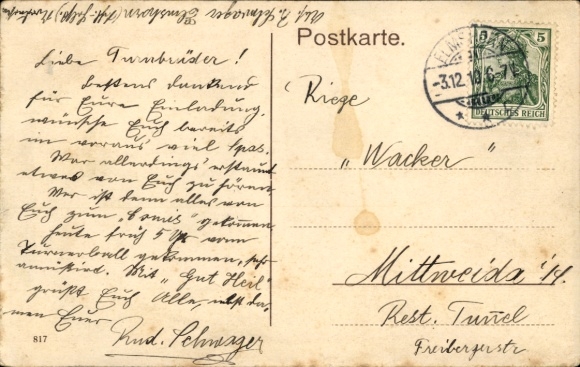 Abs. R. Schwager Elmshorn
Postkarte.
ELMSHORN
-3.12.10.6-7
5
DEUTSCHES REICH
Liebe Turnbrüder!
Bestens dankend
für Eure Einladung,
wünsche Euch bereits
im voraus viel Spas.
War allerdings erstaunt
etwas von Euch zu hören.
Wer ist denn alles von
Euch zum "Comis" gekommen
heute früh 5 Uhr vom
Turnerball gekommen, sehr
amüsird. Mit "Gut Heil"
grüßt Euch Alle, nebst Da-
men Euer
Rud. Schwager
817
Riege
"Wacker"
Mittweida i/S.
Rest. Tunnel
Freibergerstr